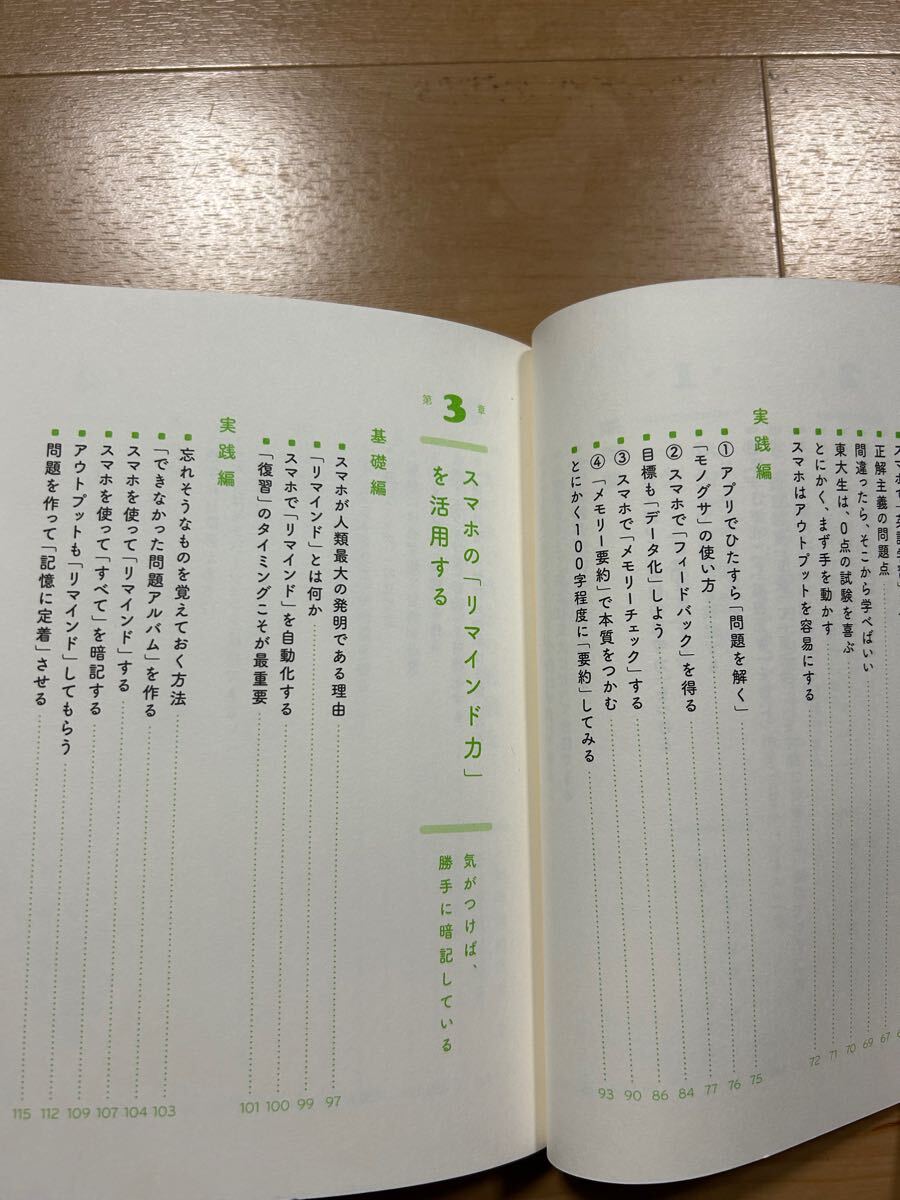 正解主義の問題点 67
間違ったら、そこから学べばいい 69
東大生は、0点の試験を喜ぶ 70
とにかく、まず手を動かす 71
スマホはアウトプットを容易にする 72
実践編
① アプリでひたすら「問題を解く」 75
「モノグサ」の使い方 76
② スマホで「フィードバック」を得る 77
目標も「データ化」しよう 84
③ スマホで「メモリーチェック」する 86
④ 「メモリー要約」で本質をつかむ 90
とにかく100字程度に「要約」してみる 93
第3章
スマホの「リマインド力」
を活用する
気がつけば、
勝手に暗記している
基礎編
スマホが人類最大の発明である理由 97
「リマインド」とは何か 99
スマホで「リマインド」を自動化する 100
「復習」のタイミングこそが最重要 101
実践編
忘れそうなものを覚えておく方法 103
「できなかった問題アルバム」を作る 104
スマホを使って「リマインド」する 107
スマホを使って「すべて」を暗記する 109
アウトプットも「リマインド」してもらう 112
問題を作って「記憶に定着」させる 115